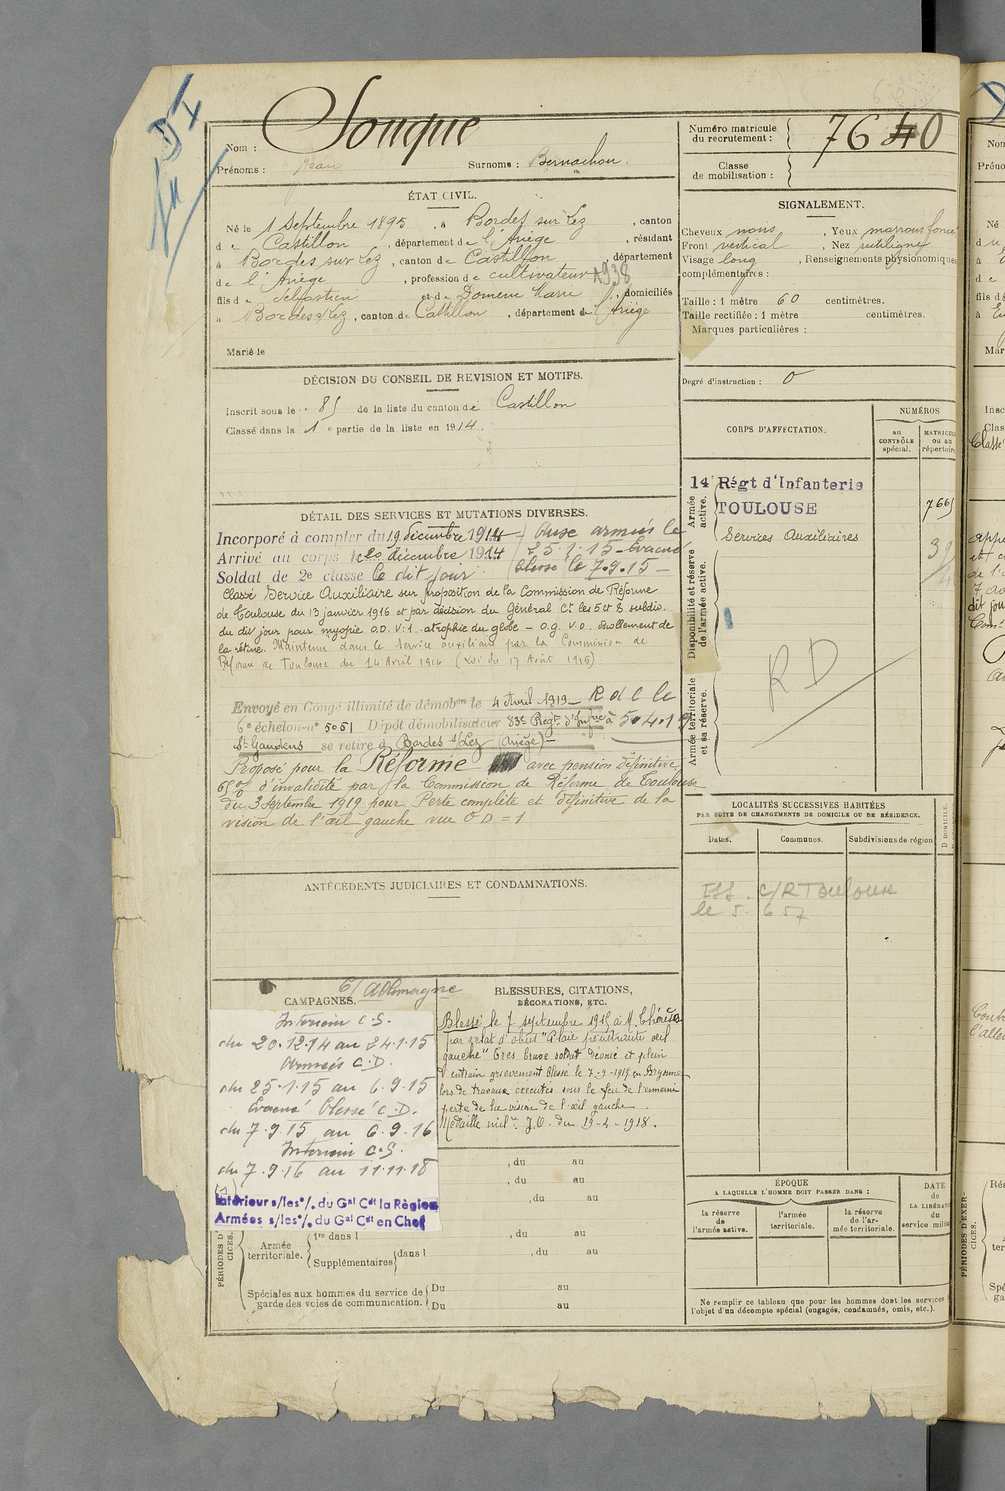 D I
Nom : Souque
Prénoms : Jean Surnoms : Bernachon.
Numéro matricule
du recrutement : 7640
Classe
de mobilisation :
ÉTAT CIVIL.
Né le 1 Septembre 1895, à Bordes sur Lez, canton
de Castillon, département de l'Ariège, résidant
à Bordes sur Lez, canton de Castillon, département
de l'Ariège, profession de cultivateur
fils de Sébastien et de Domenc Marie, domiciliés
à Bordes s/Lez, canton de Castillon, département de l'Ariège
Marié le
SIGNALEMENT.
Cheveux noirs, Yeux marrons foncé
Front vertical, Nez rectiligne
Visage long, Renseignements physionomiques
complémentaires :
Taille : 1 mètre 60 centimètres.
Taille rectifiée : 1 mètre centimètres.
Marques particulières :
Degré d'instruction : 0
DÉCISION DU CONSEIL DE REVISION ET MOTIFS.
Inscrit sous le n° 85 de la liste du canton de Castillon
Classé dans la 1e partie de la liste en 1914.
CORPS D'AFFECTATION.
NUMÉROS
au
CONTRÔLE
spécial.
MATRICULE
ou au
répertoire
Armée
active.
14e Régt d'Infanterie
TOULOUSE
7665
Services Auxiliaires
Disponibilité et réserve
de l'armée active.
R D
Armée territoriale
et sa réserve.
DÉTAIL DES SERVICES ET MUTATIONS DIVERSES.
Incorporé à compter du 19 décembre 1914 / Passe armées le
Arrivé au corps le 20 décembre 1914 / 25.1.15 - Évacué
Soldat de 2e classe le dit jour / blessé le 7.9.15 -
Classé Service Auxiliaire sur proposition de la Commission de Réforme
de Toulouse du 13 janvier 1916 et par décision du Général Ct les 5 et 8 subdiv.
du dit jour pour myopie O.D. V:1 atrophie du globe - O.g. V.O. décollement de
la rétine. Maintenu dans le Service auxiliaire par la Commission de
Réforme de Toulouse du 14 Avril 1916 (Loi du 17 Août 1915)
Envoyé en Congé illimité de démobon le 4 Avril 1919 - R d C le
6e échelon - n° 5051 Dépôt démobilisateur 83e Régt d'Infrie à 5.4.19
St Gaudens se retire à Bordes s/Lez (Ariège) -
Proposé pour la Réforme avec pension définitive
65 % d'invalidité par la Commission de Réforme de Toulouse
du 3 septembre 1919 pour Perte complète et définitive de la
vision de l'œil gauche vue O D = 1
LOCALITÉS SUCCESSIVES HABITÉES
PAR SUITE DE CHANGEMENTS DE DOMICILE OU DE RÉSIDENCE.
Dates. Communes. Subdivisions de région
D DOMICILE.
C/R Toulouse
le 5. 6 57
ANTÉCÉDENTS JUDICIAIRES ET CONDAMNATIONS.
C/ Allemagne
CAMPAGNES.
Intérieur C.S.
du 20.12.14 au 24.1.15
Armées C.D.
du 25.1.15 au 6.9.15
Évacué blessé C.D.
du 7.9.15 au 6.9.16
Intérieur C.S.
du 7.9.16 au 11.11.18
Intérieur s/les °/. du Gal Cdt la Région
Armées s/les °/. du Gal Cdt en Chef
BLESSURES, CITATIONS,
DÉCORATIONS, ETC.
Blessé le 7 septembre 1915 à
par éclat d'obus "Plaie pénétrante œil
gauche" Très brave soldat dévoué et plein
d'entrain grièvement blessé le 7-9-1915 en Argonne
lors de travaux exécutés sous le feu de l'ennemi
perte de la vision de l'œil gauche.
Médaille milre J.O. du 19-4-1918.
, du au
, du au
, du au
, du au
, du au
Armée
territoriale.
1re dans l
Supplémentaires
dans l
Spéciales aux hommes du service de
garde des voies de communication.
Du au
Du au
ÉPOQUE
A LAQUELLE L'HOMME DOIT PASSER DANS :
la réserve
de
l'armée active.
l'armée
territoriale.
la réserve
de l'ar-
mée territoriale.
DATE
de
LA LIBÉRATION
du
service militaire
Ne remplir ce tableau que pour les hommes dont les services
l'objet d'un décompte spécial (engagés, condamnés, omis, etc.).
PÉRIODES D'EXER-
CICES.